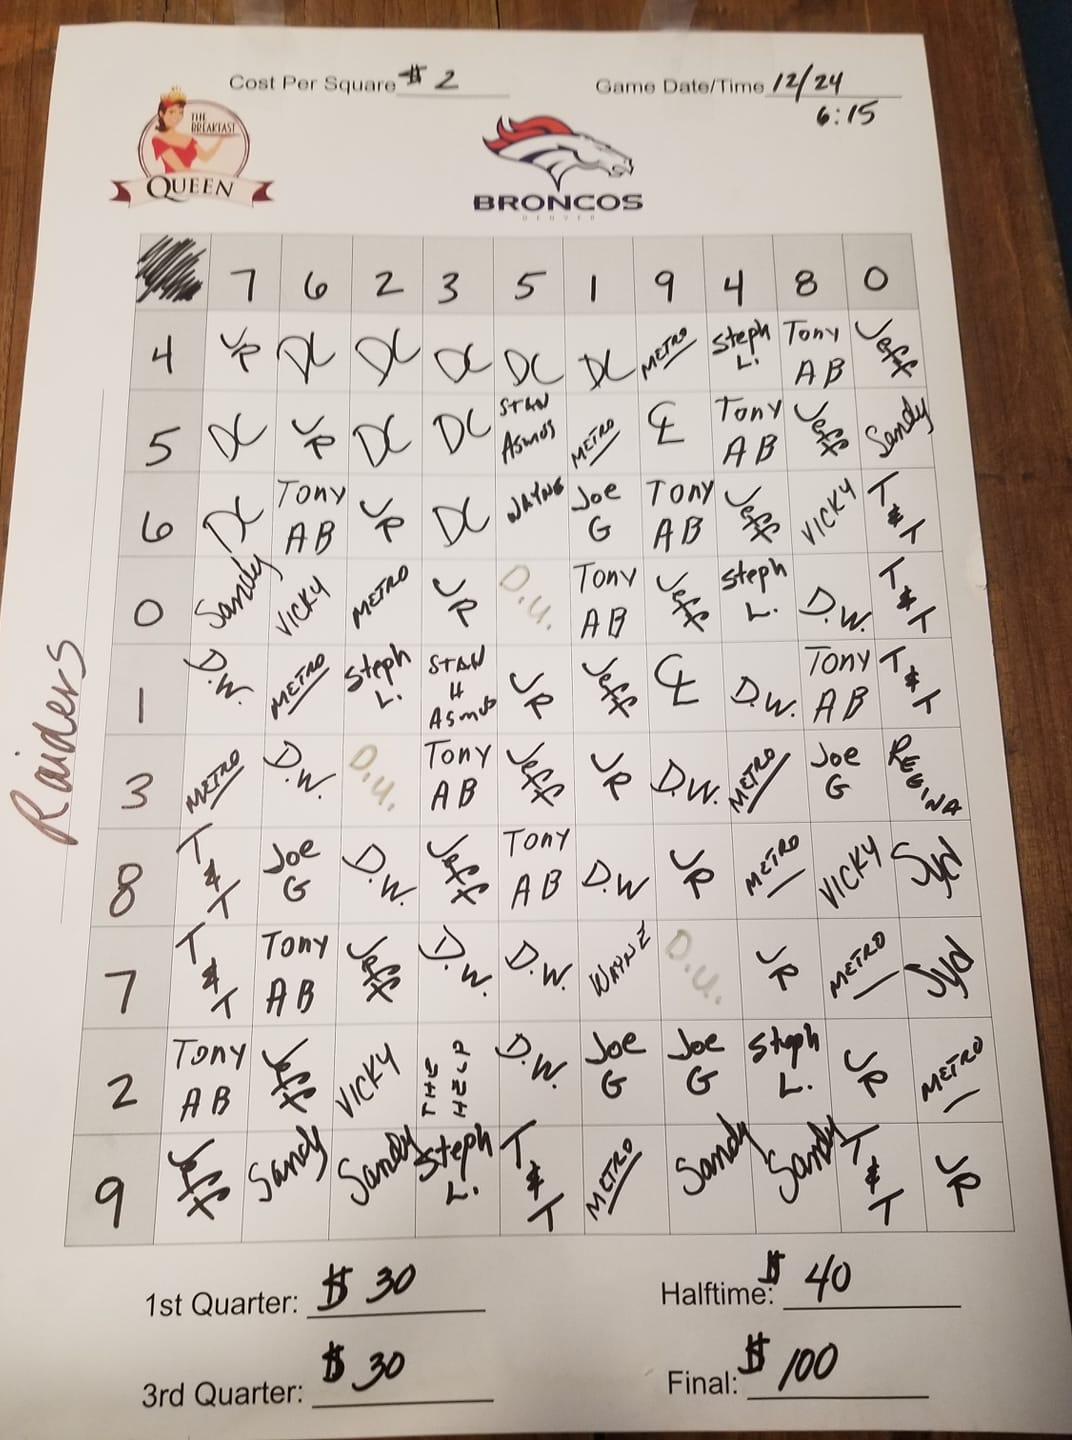 Cost Per Square $ 2
Game Date/Time 12/24
6:15
THE
BREAKFAST
QUEEN
BRONCOS
DENVER
Raiders
7 6 2 3 5 1 9 4 8 0
4 JR DC DC DC DC DC METRO Steph L. Tony AB Jeff
5 DC JR DC DC STAN Asmus METRO CL Tony AB Jeff Sandy
6 DC Tony AB JR DC WAYNE Joe G Tony AB Jeff VICKY T & T
0 Sandy VICKY METRO JR D.U. Tony AB Jeff Steph L. D.W. T & T
1 D.W. METRO Steph L. STAN H Asmus JR Jeff CL D.W. Tony AB T & T
3 METRO D.W. D.U. Tony AB Jeff JR D.W. METRO Joe G REGINA
8 T & T Joe G D.W. Jeff Tony AB D.W JR METRO VICKY Syd
7 T & T Tony AB Jeff D.W. D.W. WAYNE D.U. JR METRO Syd
2 Tony AB Jeff VICKY THE HELP D.W. Joe G Joe G Steph L. JR METRO
9 Jeff Sandy Sandy Steph L. T & T METRO Sandy Sandy T & T JR
1st Quarter: $ 30
Halftime: $ 40
3rd Quarter: $ 30
Final: $ 100